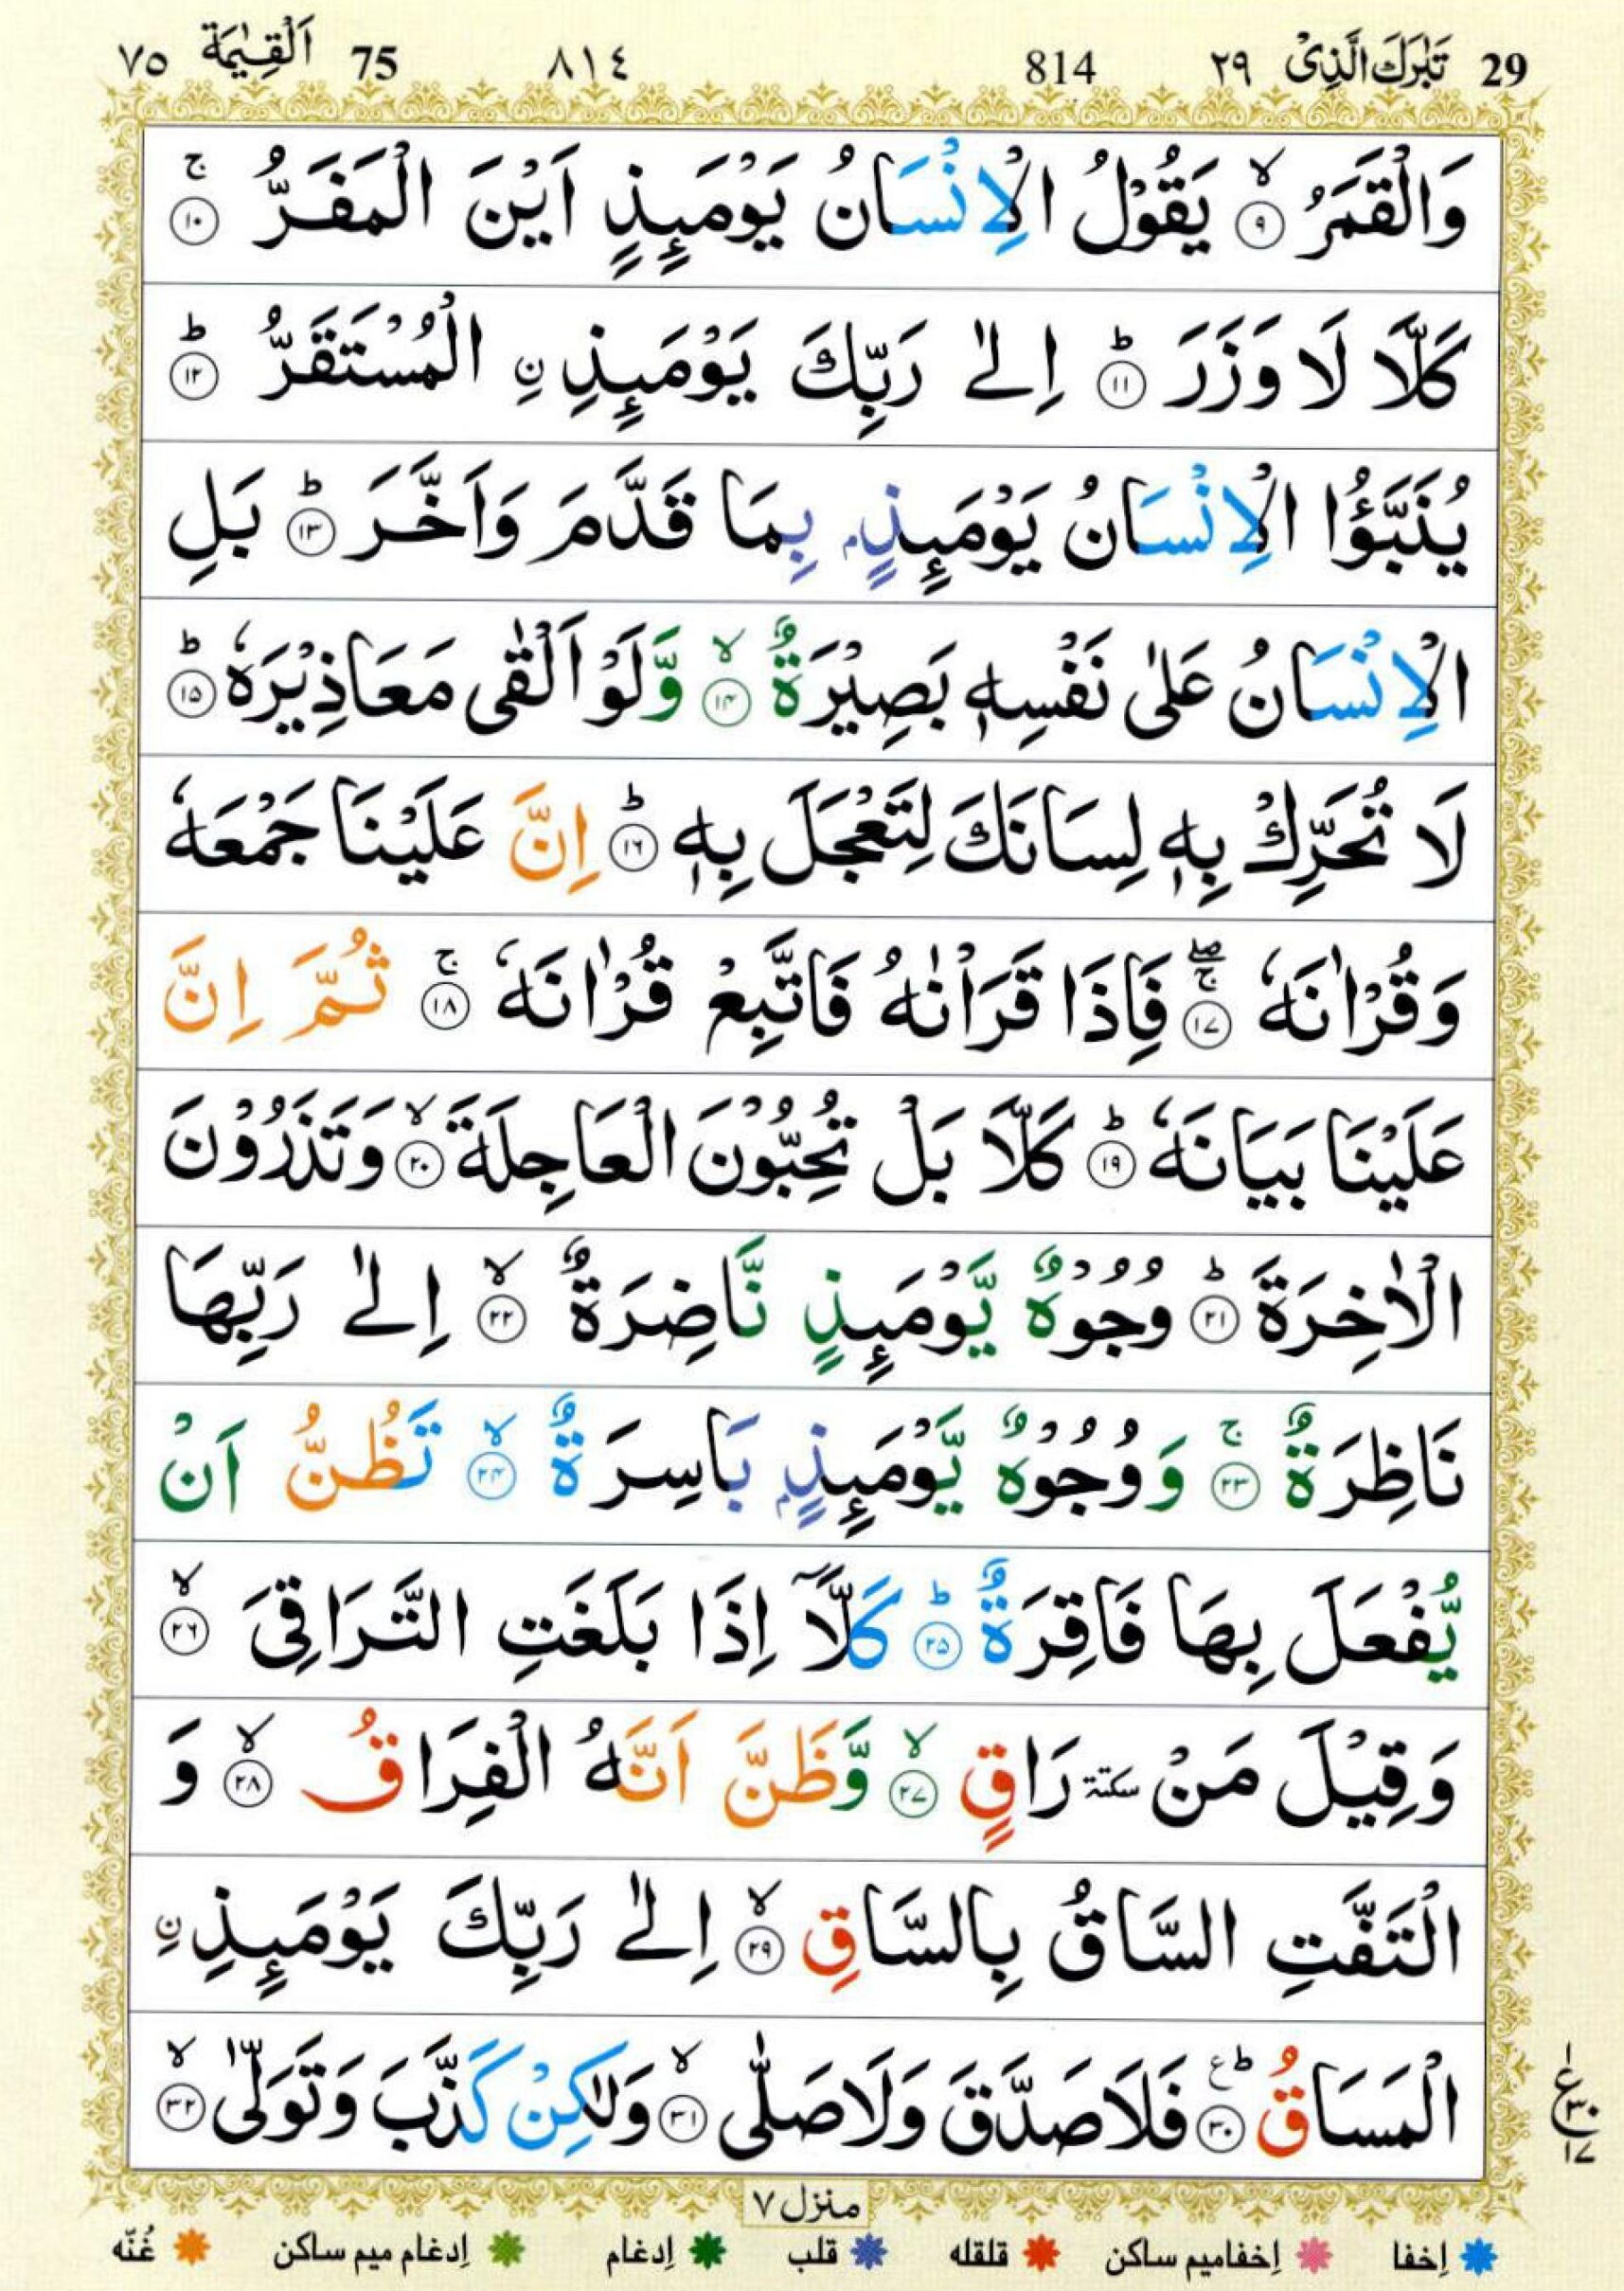 29 تَبٰرَكَ الَّذِیْ ٢٩ 814 ٨١٤ 75 اَلْقِيٰمَة ٧٥
وَالْقَمَرُ ۙ‏ ﴿۹﴾ يَقُوْلُ الْاِنْسَانُ يَوْمَٮِٕذٍ اَيْنَ الْمَفَرُّ‌ ۚ‏ ﴿۱۰﴾
كَلَّا لَا وَزَرَ ؕ‏ ﴿۱۱﴾ اِلٰى رَبِّكَ يَوْمَٮِٕذِ ۨالْمُسْتَقَرُّ ؕ‏ ﴿۱۲﴾
يُنَبَّؤُا الْاِنْسَانُ يَوْمَٮِٕذٍۢ بِمَا قَدَّمَ وَاَخَّرَ ؕ‏ ﴿۱۳﴾ بَلِ
الْاِنْسَانُ عَلٰى نَفْسِهٖ بَصِيْرَةٌ ۙ‏ ﴿۱۴﴾ وَّلَوْ اَلْقٰى مَعَاذِيْرَهٗ ؕ‏ ﴿۱۵﴾
لَا تُحَرِّكْ بِهٖ لِسَانَكَ لِتَعْجَلَ بِهٖ ؕ‏ ﴿۱۶﴾ اِنَّ عَلَيْنَا جَمْعَهٗ
وَقُرْاٰنَهٗ ۚ ۖ‏ ﴿۱۷﴾ فَاِذَا قَرَاْنٰهُ فَاتَّبِعْ قُرْاٰنَهٗ‌ ۚ‏ ﴿۱۸﴾ ثُمَّ اِنَّ
عَلَيْنَا بَيَانَهٗ ؕ‏ ﴿۱۹﴾ كَلَّا بَلْ تُحِبُّوْنَ الْعَاجِلَةَ ۙ‏ ﴿۲۰﴾ وَتَذَرُوْنَ
الْاٰخِرَةَ ؕ‏ ﴿۲۱﴾ وُجُوْهٌ يَّوْمَٮِٕذٍ نَّاضِرَةٌ ۙ‏ ﴿۲۲﴾ اِلٰى رَبِّهَا
نَاظِرَةٌ‌ ۚ‏ ﴿۲۳﴾ وَوُجُوْهٌ يَّوْمَٮِٕذٍۢ بَاسِرَةٌ ۙ‏ ﴿۲۴﴾ تَظُنُّ اَنْ
يُّفْعَلَ بِهَا فَاقِرَةٌ ؕ‏ ﴿۲۵﴾ كَلَّاۤ اِذَا بَلَغَتِ التَّرَاقِىَ ۙ‏ ﴿۲۶﴾
وَقِيْلَ مَنْ سكتة رَاقٍ ۙ‏ ﴿۲۷﴾ وَّظَنَّ اَنَّهُ الْفِرَاقُ ۙ‏ ﴿۲۸﴾ وَ
الْتَفَّتِ السَّاقُ بِالسَّاقِ ۙ‏ ﴿۲۹﴾ اِلٰى رَبِّكَ يَوْمَٮِٕذِ ۨ
الْمَسَاقُ ؕع‏ ﴿۳۰﴾ فَلَا صَدَّقَ وَلَا صَلّٰى ۙ‏ ﴿۳۱﴾ وَلٰكِنْ كَذَّبَ وَتَوَلّٰى ۙ‏ ﴿۳۲﴾
١ ع ٣٠ ١٧
منزل ٧
إخفا إخفامیم ساکن قلقله قلب إدغام إدغام میم ساکن غُنّه